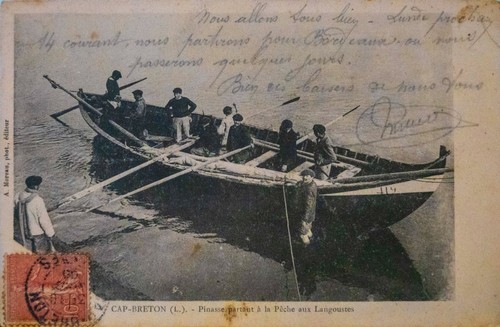 Nous allons tous bien - Lundi prochain
14 courant, nous partirons pour Bordeaux où nous
passerons quelques jours.
Bien des baisers de nous tous
A. Moreau, phot., éditeur
CAP-BRETON (L.). - Pinasse partant à la Pêche aux Langoustes